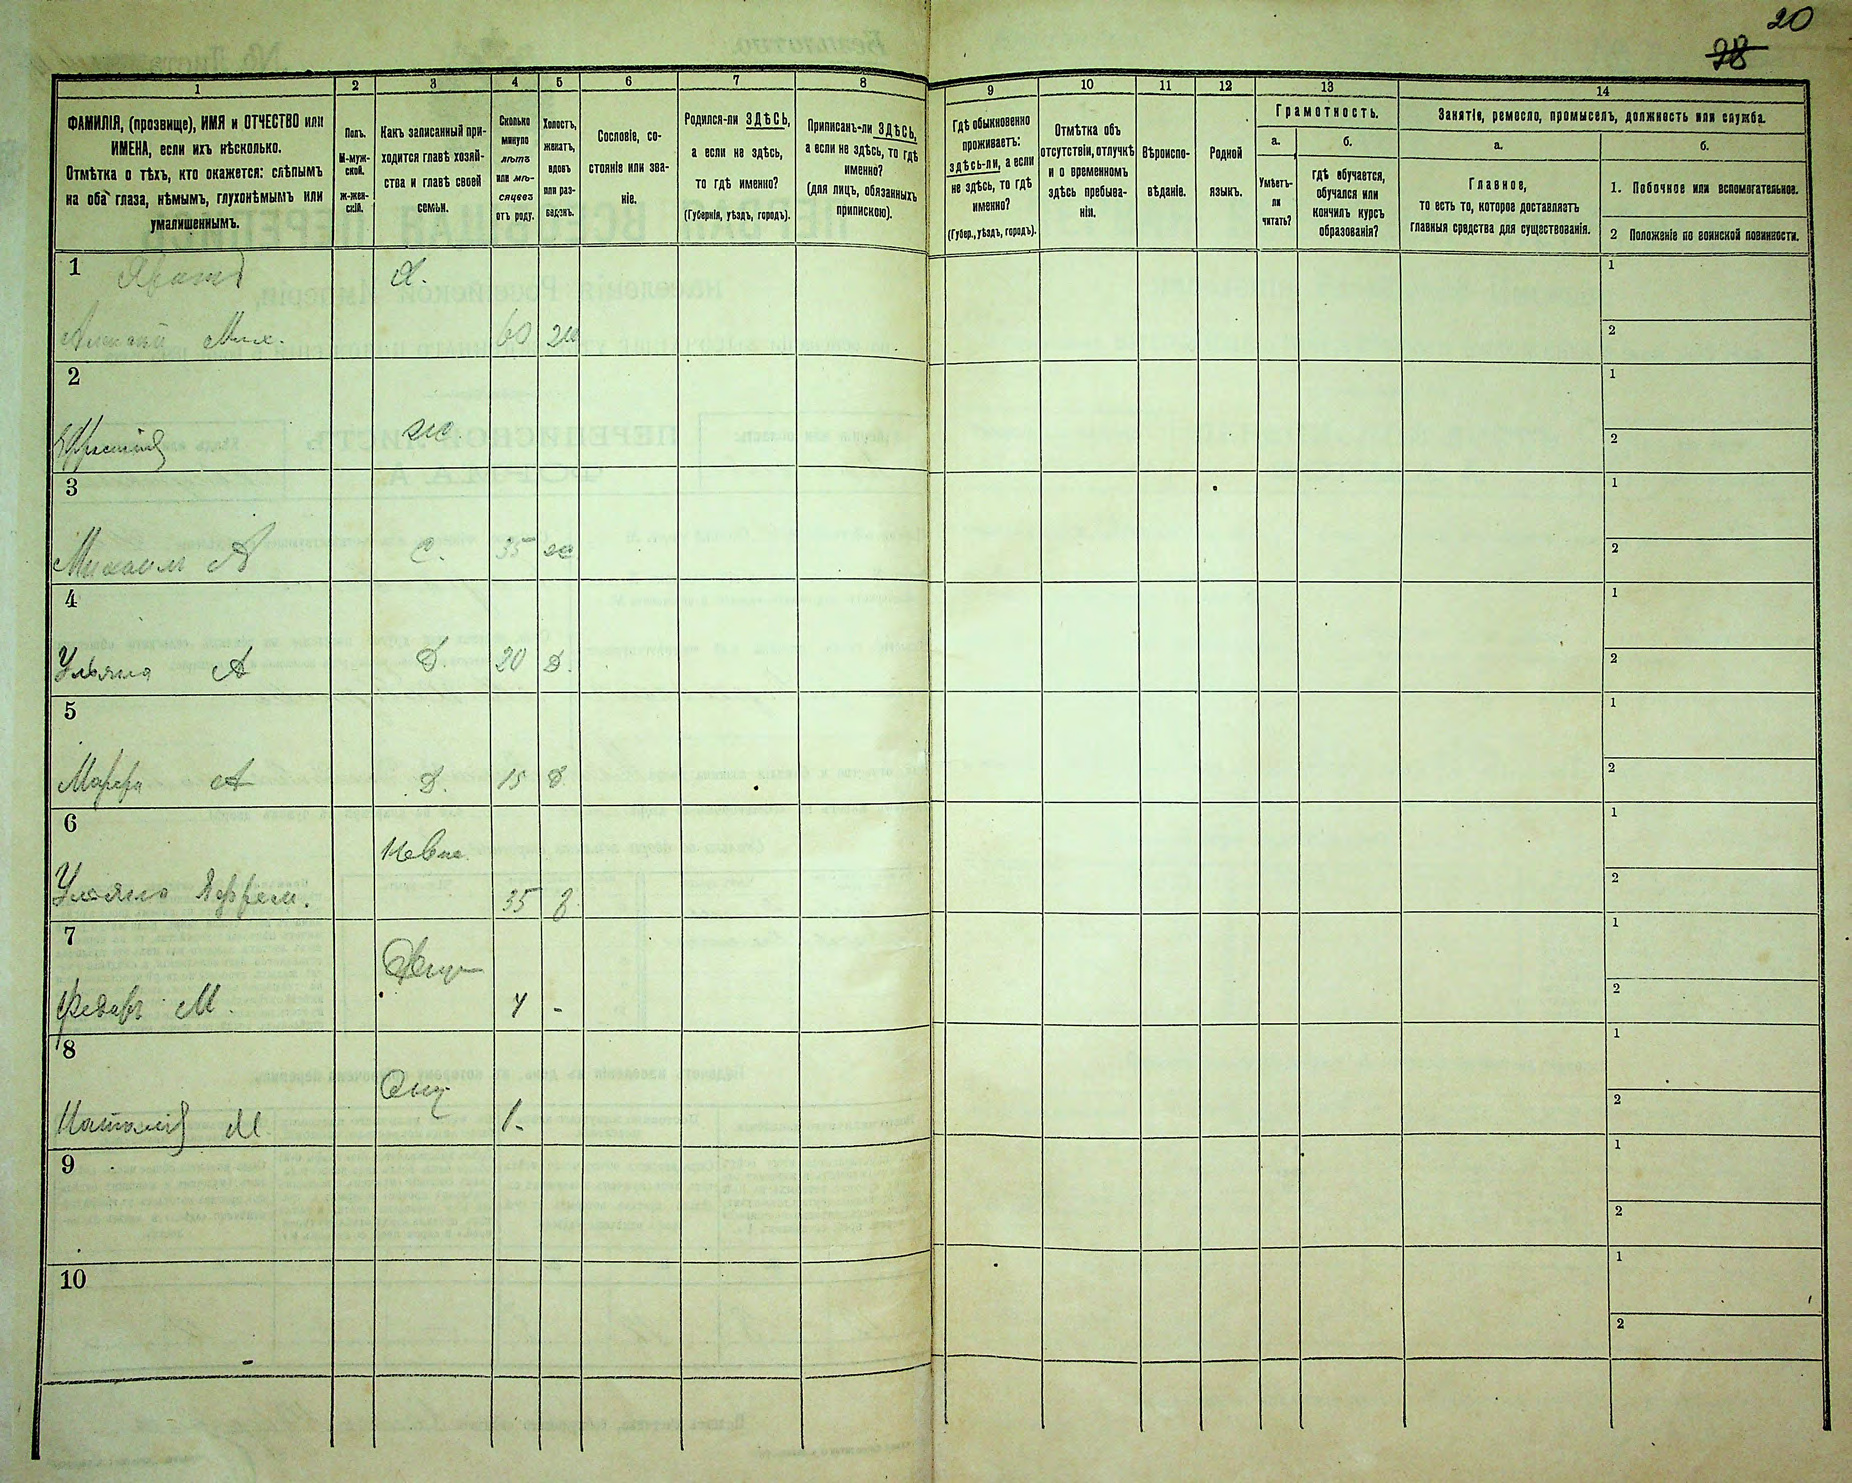 20
28
1
2
3
4
5
6
7
8
9
10
11
12
13
14
ФАМИЛІЯ, (прозвище), ИМЯ и ОТЧЕСТВО или
ИМЕНА, если ихъ нѣсколько.
Отмѣтка о тѣхъ, кто окажется: слѣпымъ
на оба глаза, нѣмымъ, глухонѣмымъ или
умалишеннымъ.
Полъ.
М-муж-
ской.
ж-жен-
скій.
Какъ записанный при-
ходится главѣ хозяй-
ства и главѣ своей
семьи.
Сколько
минуло
лѣтъ
или мѣ-
сяцевъ
отъ роду.
Холостъ,
женатъ,
вдовъ
или раз-
веденъ.
Сословіе, со-
стояніе или зва-
ніе.
Родился-ли ЗДѢСЬ,
а если не здѣсь,
то гдѣ именно?
(Губернія, уѣздъ, городъ).
Приписанъ-ли ЗДѢСЬ,
а если не здѣсь, то гдѣ
именно?
(для лицъ, обязанныхъ
припискою).
Гдѣ обыкновенно
проживаетъ:
здѣсь-ли, а если
не здѣсь, то гдѣ
именно?
(Губер., уѣздъ, городъ).
Отмѣтка объ
отсутствіи, отлучкѣ
и о временномъ
здѣсь пребыва-
ніи.
Вѣроиспо-
вѣданіе.
Родной
языкъ.
Грамотность.
а.
Умѣетъ-
ли
читать?
б.
гдѣ обучается,
обучался или
кончилъ курсъ
образованія?
Занятіе, ремесло, промыселъ, должность или служба.
а.
Главное,
то есть то, которое доставляетъ
главныя средства для существованія.
б.
1. Побочное или вспомогательное.
2 Положеніе по воинской повинности.
1
Х.
1
Мих. 60 ж
2
2
1
ж
2
3
1
Михаилъ А С. 35 ж
2
4
1
Ульяна А Д. 20 Д.
2
5
1
Марфа А Д. 15 Д
2
6
1
Невѣс.
Ульяна Ефрем. 35 з
2
7
1
Внук
Федоръ М. 4 -
2
8
1
Внуч
Наталія М 1.
2
9
1
2
10
1
2